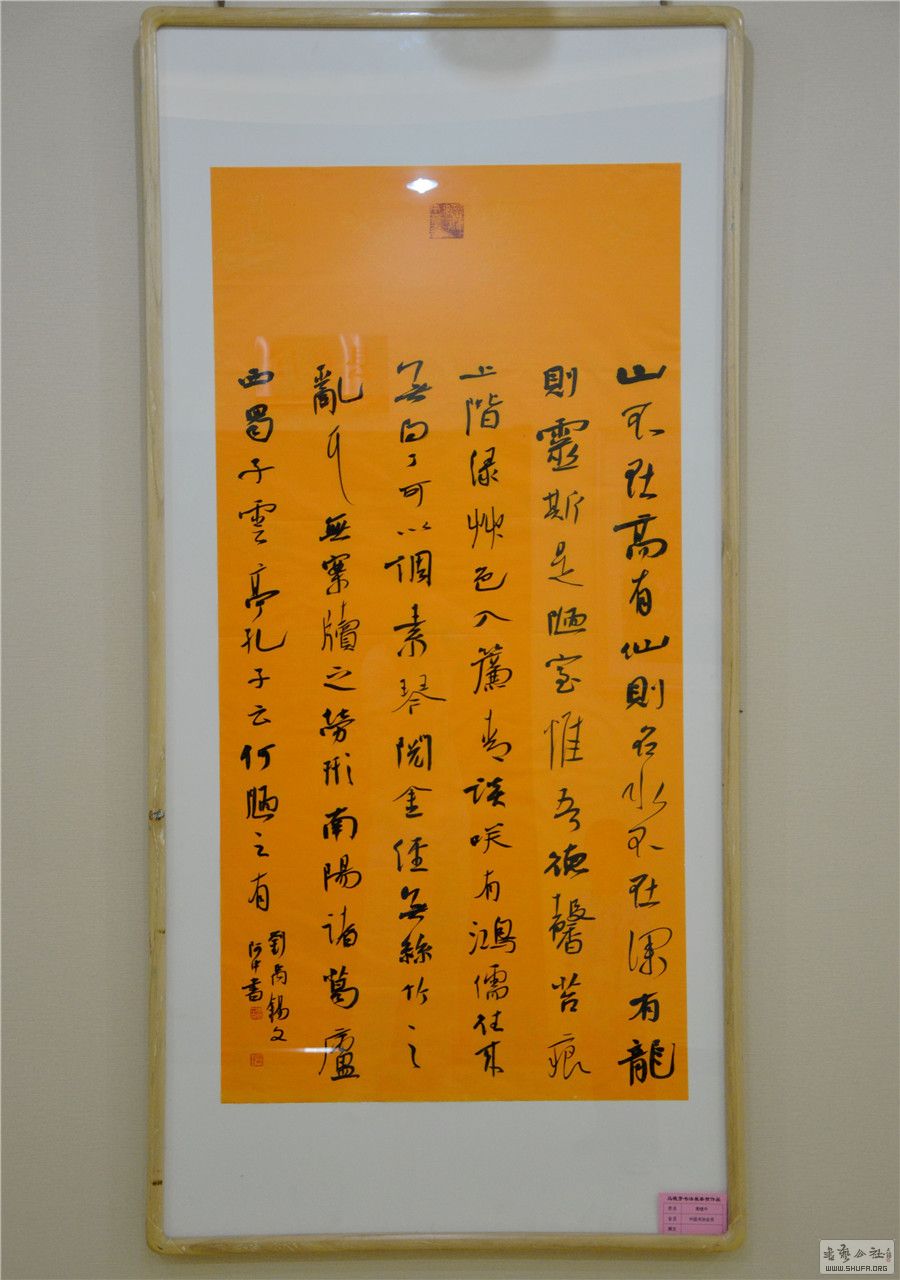 山不在高有仙則名水不在深有龍
則靈斯是陋室惟吾德馨苔痕
上階緑艸色入簾青談咲有鴻儒往來
無白丁可以調素琴閱金經無絲竹之
亂耳無案牘之勞形南陽諸葛廬
西蜀子雲亭孔子云何陋之有
劉禹錫文
書藝公社
WWW.SHUFA.ORG